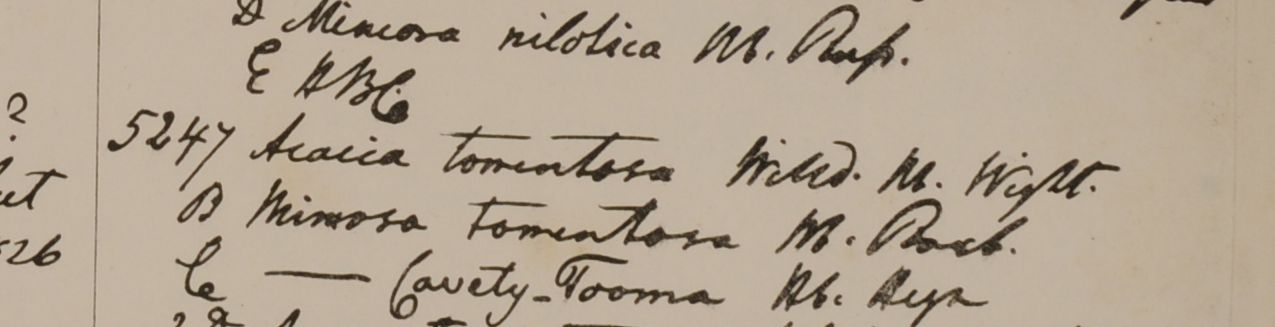 D Mimosa nilotica Hb. Roxb.
E HBC
5247 Acacia tomentosa Willd. Hb. Wight.
B Mimosa tomentosa Hb. Roxb.
C — Cavety-Tooma Hb. Heyn
?
26